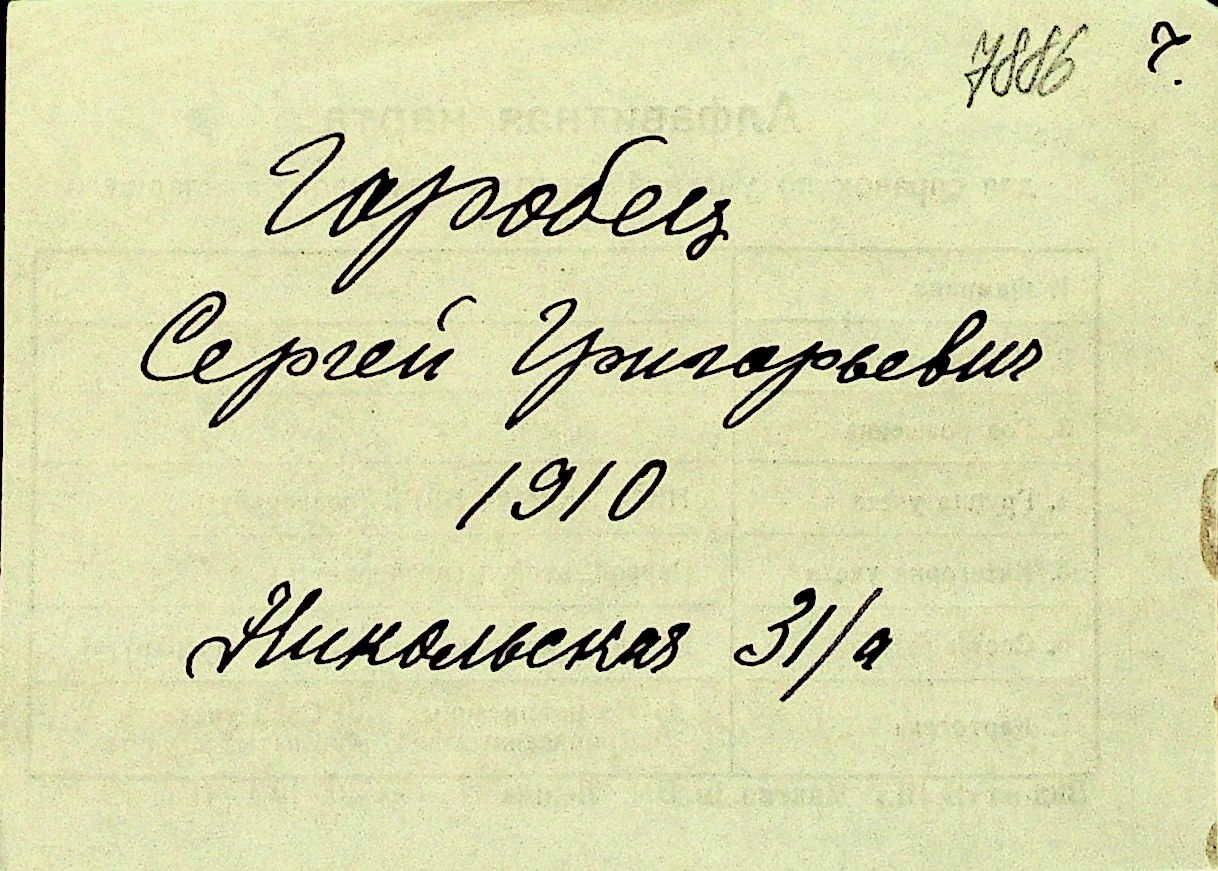 7886 г.
Горобец
Сергей Григорьевич
1910
Никольская 31/а